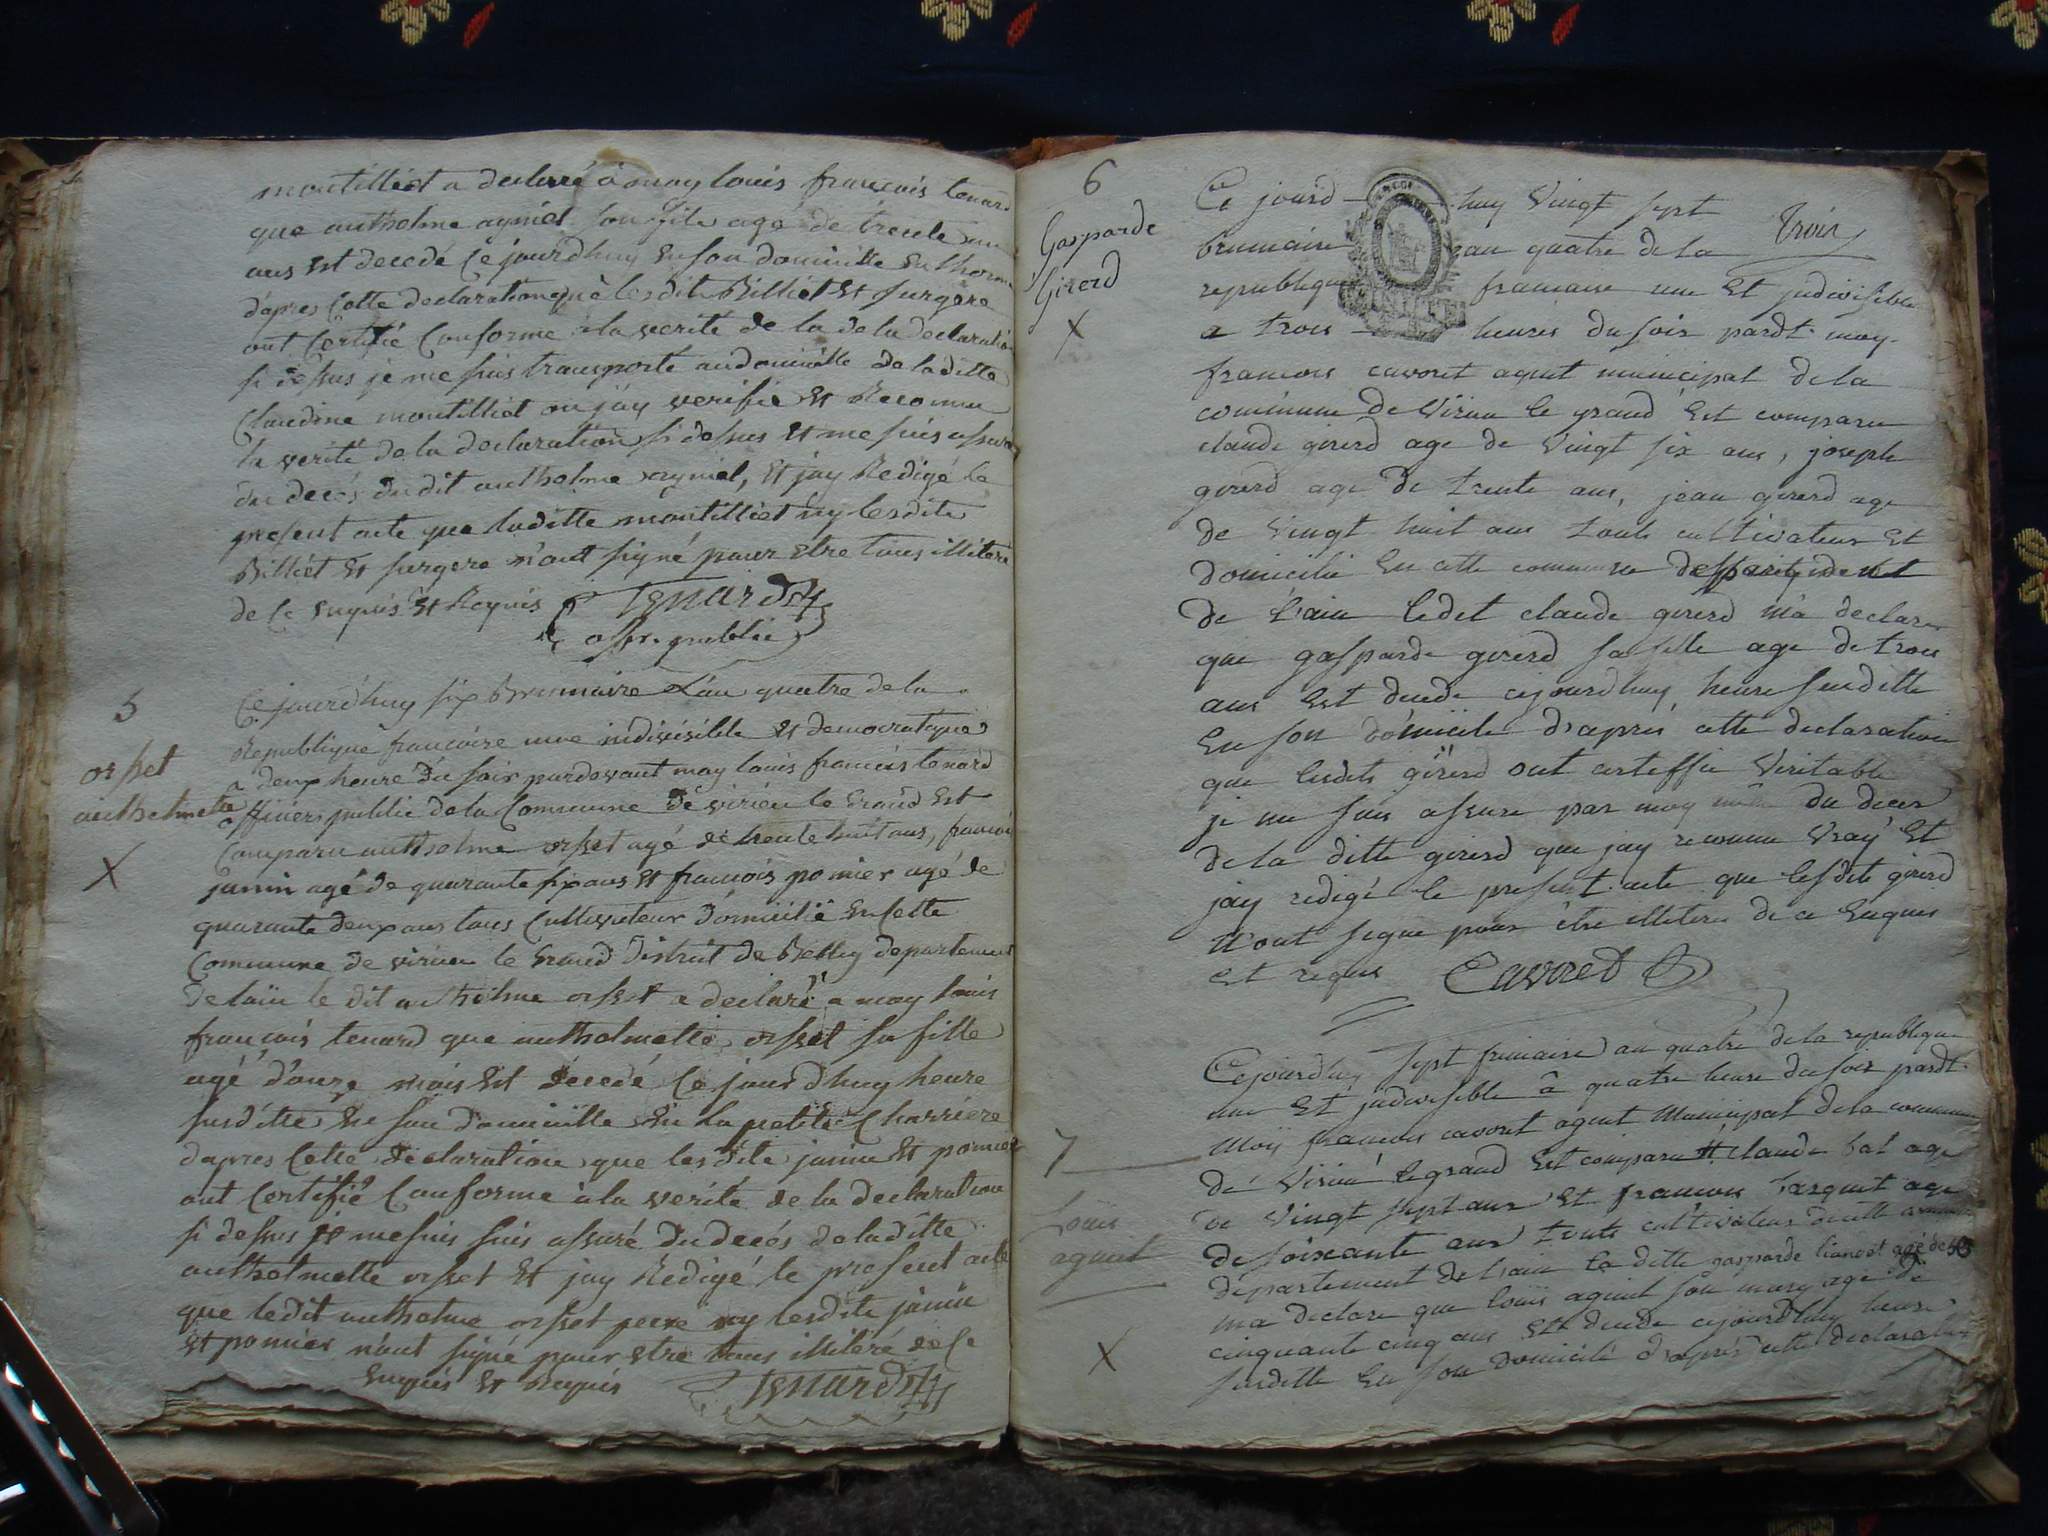 montilliet a declaré a moy louis francois tenard
que anthelme aymel son fils agé de trente un
ans Est decedé Ce jourdhuy En son domicille
d'apres Cette declaration que les dits Billiet Et surgere
ont Certifié Conforme a la verité de la de la declaration
si dessus je me suis transporté au domicille de la ditte
Claudine montilliet ou jay verifié Et Reconnu
la verité de la declaration si dessus Et me suis assuré
du decés du dit anthelme aymel, Et jay Redigé le
present acte que laditte montilliet ny lesdits
Billiet Et surgere n'ont signé pour Etre tous illiteré
de Ce Enquis Et Requis Tenard
offr. public
5
orset
anthelmette
X
Ce jourd'huy six Brumaire L'an quatre de la
Republique francoise une indivisible Et democratique
a deux heure du soir pardevant moy louis francois tenard
officiers public de la Commune de virieu le Grand Est
Comparu anthelme orset agé de trente huit ans, francois
janin agé de quarante six ans Et francois pomier agé de
quarante deux ans tous Cultivateur domicilié En Cette
Commune de virieu le Grand District de Belley departement
de lain le dit anthelme orset a declaré a moy louis
francois tenard que anthelmette orset sa fille
agé d'onze mois Est décedé Ce jourdhuy heure
susditte En son domicille En La petite Charriere
dapres Cette déclaration que les dits janin Et pomier
ont Certifié Conforme a la verité de la declaration
si dessus je me suis suis assuré du decés de la ditte
anthelmette orset Et jay Rédigé le present acte
que ledit anthelme orset pere ny lesdits janin
Et pomier n'ont signé pour Etre tous illiteré de Ce
Enquis Et Requis Tenard
6
Gasparde
Girerd
X
Ce jourd huy Vingt sept
Trois
brumaire an quatre de la
republique francaise une Et jndivisible
a trois heures du soir pardt. moy
francois cavoret agent municipal de la
commune de Virieu le grand Est comparu
claude girerd age de Vingt six ans, joseph
girerd age de trente ans, jean girerd age
de Vingt huit ans touts cultivateurs Et
domicilié En cette commune departement
de L'ain Ledit claude girerd m'a declaré
que gasparde girerd sa fille age de trois
ans Est decedé cejourdhuy heure susditte
En son domicile d'aprés cette declaration
que lesdits girerd ont certiffié Veritable
je me suis assure par moy même du deces
de la ditte girerd que jay reconnu Vray Et
jay redigé le present acte que lesdits girerd
n'ont signe pour être illiteré de ce Enquis
et requis Cavoret
7
Louis
aguet
X
Cejourdhuy sept frimaire an quatre de la republique
une Et jndivisible â quatre heure du soir pardt.
Moy francois cavoret agent Municipal de la commune
de Virieu le grand Est comparu claude bal age
de Vingt sept ans Et francois age
de soixante ans touts cultivateurs de cette
département de L'ain La ditte gasparde agé de 50
ma declare que Louis aguet son mary age de
cinquante cinq ans Est decede cejourdhuy heure
susditte En son domicile d'aprés cette declaration